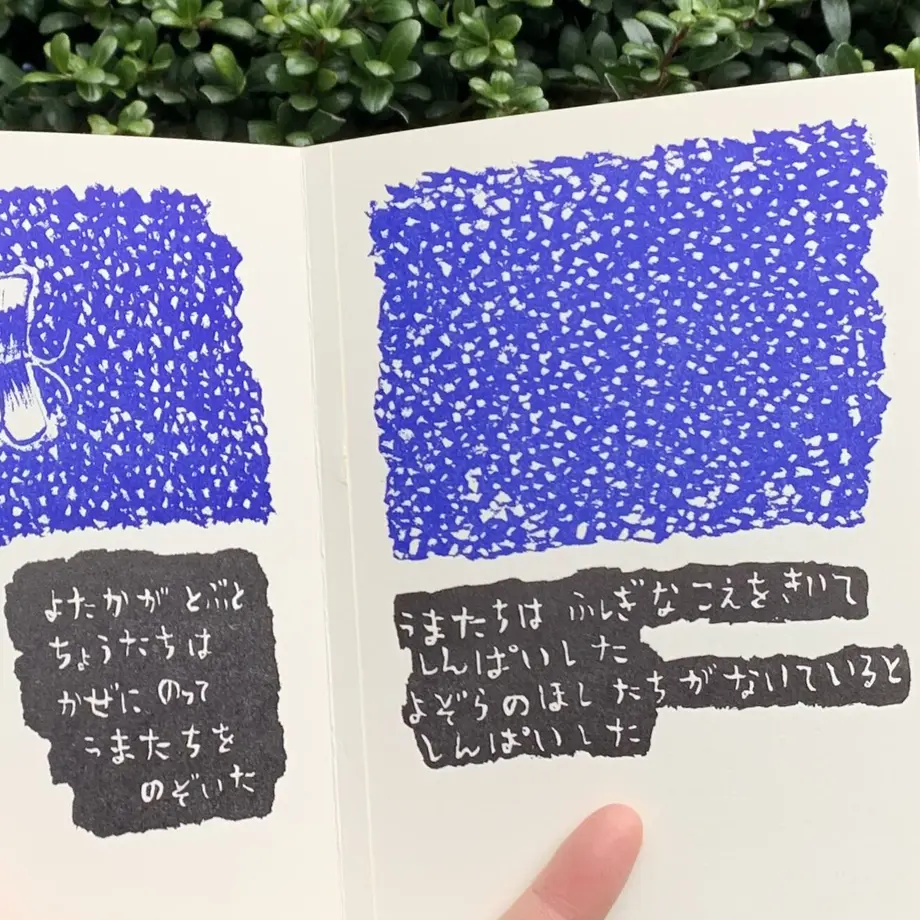 よたかが とぶと
ちょうたちは
かぜに のって
うまたちを
のぞいた
うまたちは ふしぎな こえを きいて
しんぱいした
よぞらのほしたちが ないていると
しんぱいした